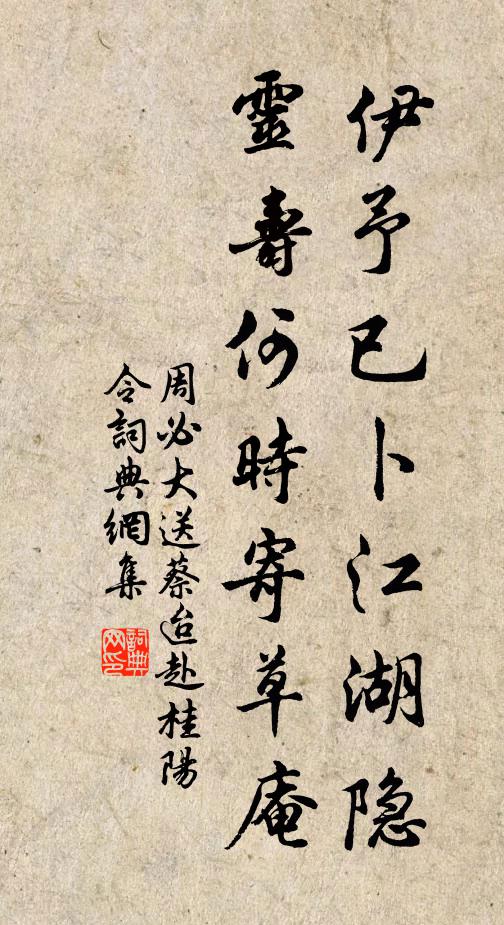 伊予已卜江湖隐
靈壽何時寄草庵
周必大送蔡迨赴桂陽
令詞典網集
詞典网印